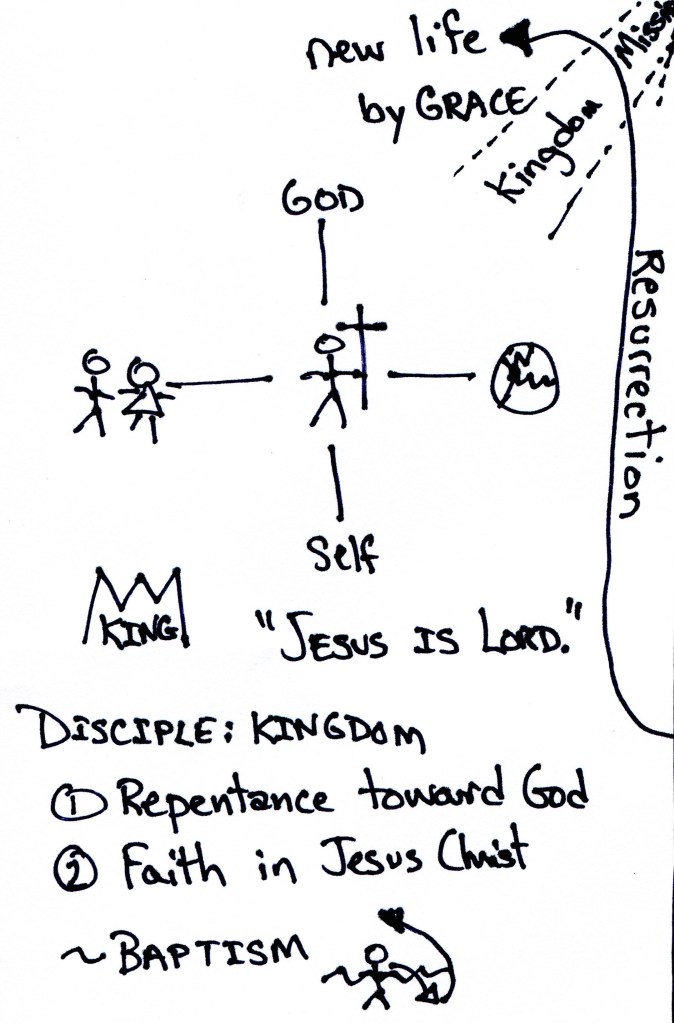 new life
by GRACE
Kingdom
GOD
Resurrection
Self
KING
"JESUS IS LORD."
DISCIPLE: KINGDOM
① Repentance toward God
② Faith in Jesus Christ
~ BAPTISM